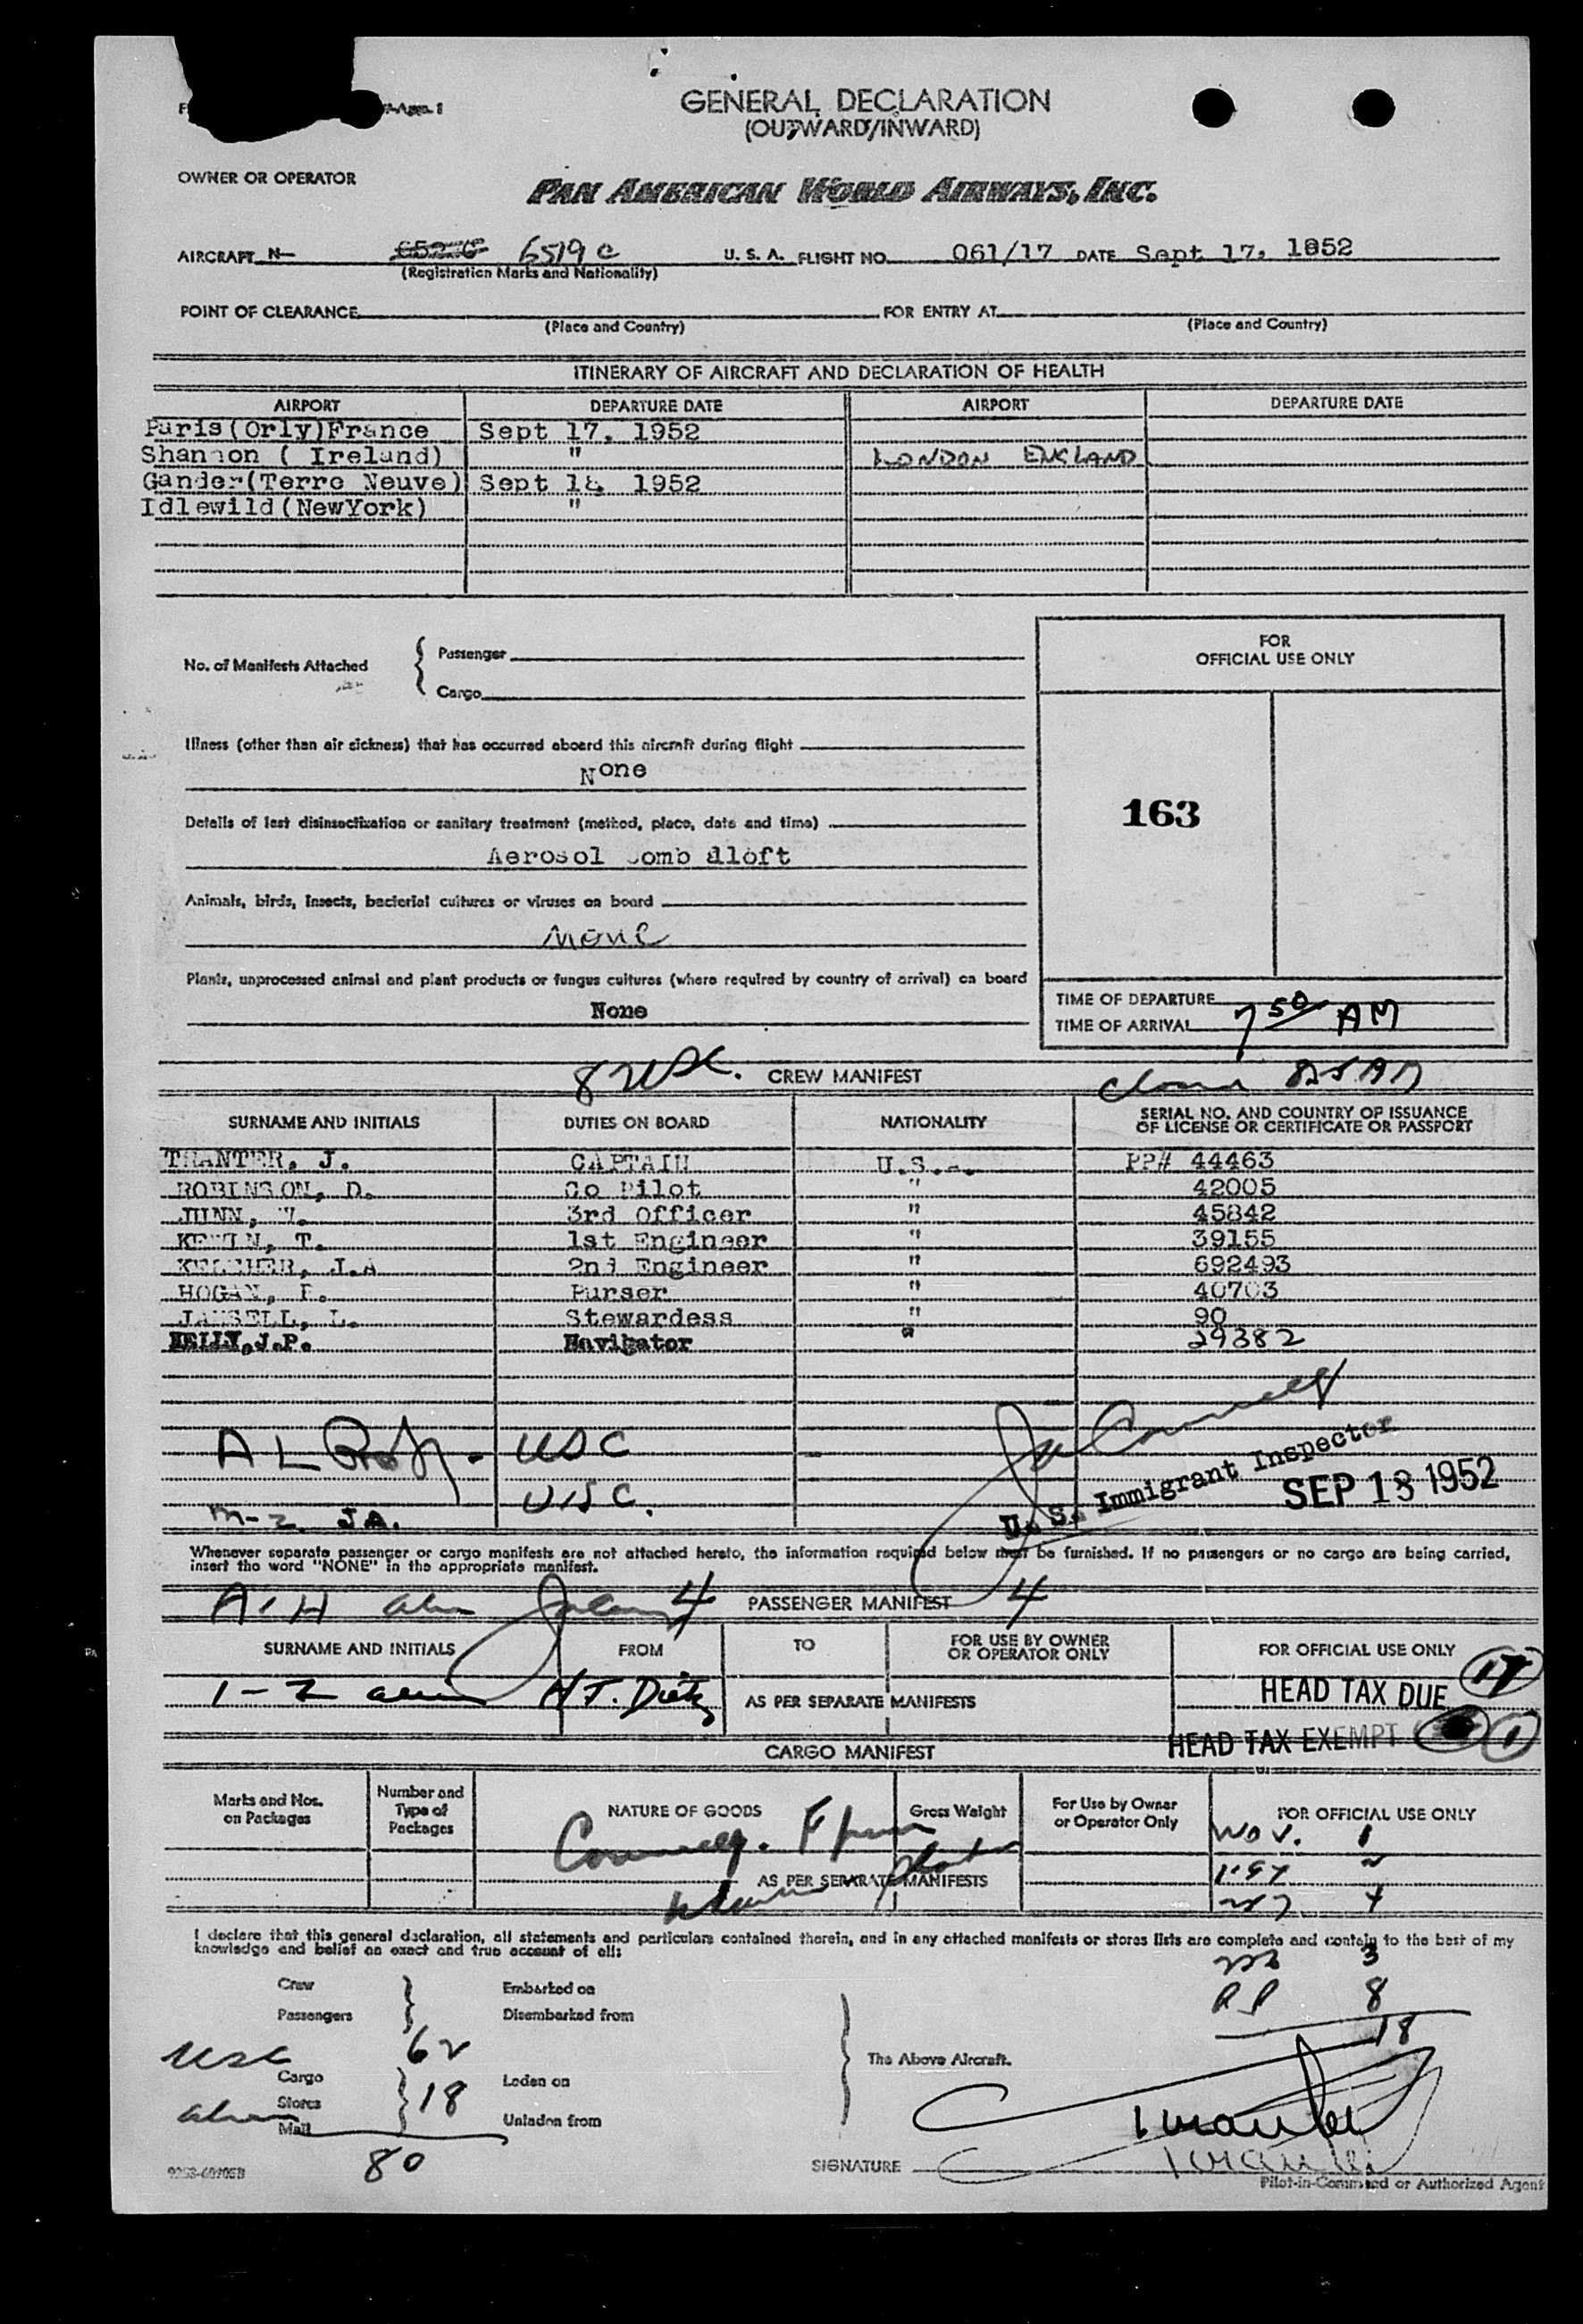 GENERAL DECLARATION
(OUTWARD/INWARD)
OWNER OR OPERATOR
PAN AMERICAN WORLD AIRWAYS, INC.
AIRCRAFT N- 6519C U. S. A. FLIGHT NO. 061/17 DATE Sept 17, 1952
(Registration Marks and Nationality)
POINT OF CLEARANCE FOR ENTRY AT
(Place and Country) (Place and Country)
ITINERARY OF AIRCRAFT AND DECLARATION OF HEALTH
AIRPORT DEPARTURE DATE AIRPORT DEPARTURE DATE
Paris(Orly)France Sept 17, 1952
Shannon ( Ireland) " LONDON ENGLAND
Gander(Terre Neuve) Sept 18, 1952
Idlewild(NewYork) "
FOR
OFFICIAL USE ONLY
No. of Manifests Attached { Passenger
Cargo
Illness (other than air sickness) that has occurred aboard this aircraft during flight
None
163
Details of last disinsectization or sanitary treatment (method, place, date and time)
Aerosol bomb aloft
Animals, birds, insects, bacterial cultures or viruses on board
None
Plants, unprocessed animal and plant products or fungus cultures (where required by country of arrival) on board
None
TIME OF DEPARTURE
TIME OF ARRIVAL 7 50 AM
8 USC. CREW MANIFEST
SURNAME AND INITIALS DUTIES ON BOARD NATIONALITY SERIAL NO. AND COUNTRY OF ISSUANCE
OF LICENSE OR CERTIFICATE OR PASSPORT
TRANTER, J. CAPTAIN U.S. PP# 44463
ROBINSON, D. Co Pilot " 42005
3rd Officer " 45842
1st Engineer " 39155
KELCHER, J.A 2nd Engineer " 692493
HOGAN, Purser " 40703
Stewardess " 90
KELLY,J.P. Navigator " 29382
A L USC
USC.
J.A.
U. S. Immigrant Inspector
SEP 18 1952
Whenever separate passenger or cargo manifests are not attached hereto, the information required below must be furnished. If no passengers or no cargo are being carried,
insert the word "NONE" in the appropriate manifest.
4 PASSENGER MANIFEST 4
SURNAME AND INITIALS FROM TO FOR USE BY OWNER
OR OPERATOR ONLY FOR OFFICIAL USE ONLY
AS PER SEPARATE MANIFESTS
HEAD TAX DUE 17
HEAD TAX EXEMPT 1
CARGO MANIFEST
Marks and Nos.
on Packages
Number and
Type of
Packages
NATURE OF GOODS Gross Weight
For Use by Owner
or Operator Only
FOR OFFICIAL USE ONLY
AS PER SEPARATE MANIFESTS
I declare that this general declaration, all statements and particulars contained therein, and in any attached manifests or stores lists are complete and contain to the best of my
knowledge and belief an exact and true account of all:
3
8
18
Crew
Passengers
Embarked on
Disembarked from
USC 62
Cargo
Stores
Mail
18
Laden on
Unladen from
The Above Aircraft.
80
SIGNATURE
Pilot-in-Command or Authorized Agent